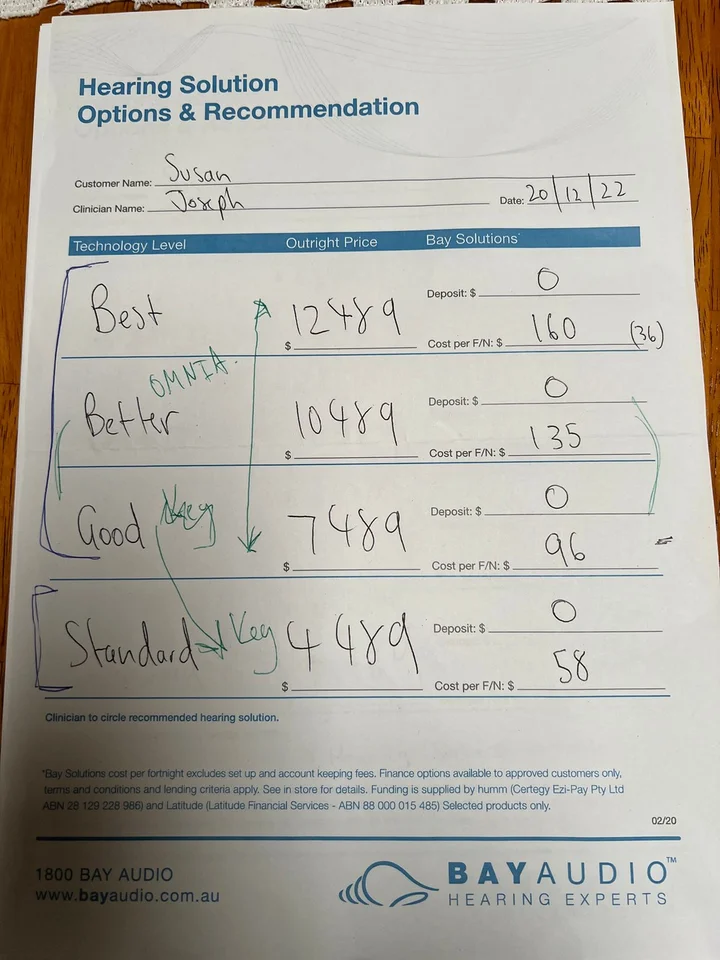 Hearing Solution
Options & Recommendation
Customer Name: Susan
Clinician Name: Joseph Date: 20/12/22
Technology Level Outright Price Bay Solutions*
Best $ 12489 Deposit: $ 0
Cost per F/N: $ 160 (36)
OMNIA.
Better $ 10489 Deposit: $ 0
Cost per F/N: $ 135
Good $ 7489 Deposit: $ 0
Cost per F/N: $ 96
Standard Key $ 4489 Deposit: $ 0
Cost per F/N: $ 58
Clinician to circle recommended hearing solution.
*Bay Solutions cost per fortnight excludes set up and account keeping fees. Finance options available to approved customers only,
terms and conditions and lending criteria apply. See in store for details. Funding is supplied by humm (Certegy Ezi-Pay Pty Ltd
ABN 28 129 228 986) and Latitude (Latitude Financial Services - ABN 88 000 015 485) Selected products only.
02/20
1800 BAY AUDIO
www.bayaudio.com.au
BAYAUDIO™
HEARING EXPERTS